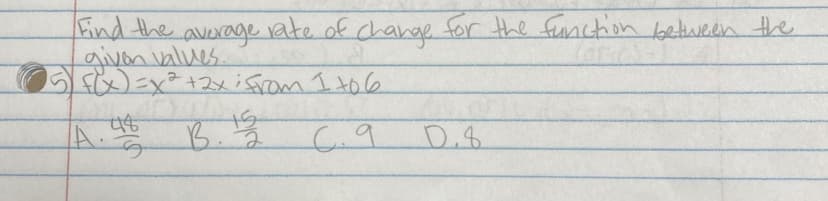 Find the average rate of change for the function between the
given values.
5) f(x)=x²+2x; from 1 to 6
A. 48/5 B. 15/2 C. 9 D. 8